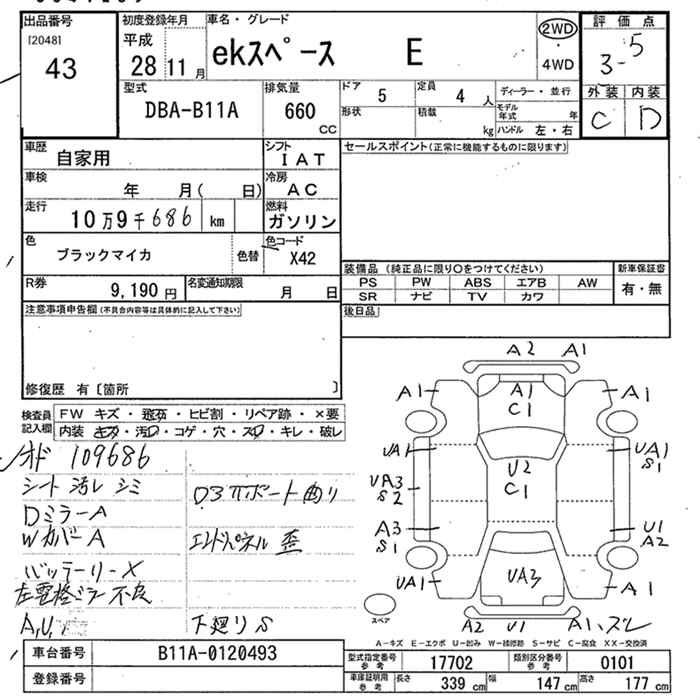 出品番号 初度登録年月 車名・グレード 評価点
[2048] 平成 2WD
43 28 11月 ekスペース E 4WD 3-5
型式 排気量 ドア 定員 ディーラー・並行 外装 内装
DBA-B11A 660 CC 5 4人 モデル年式 年 C D
形状 積載 kg ハンドル 左・右
車歴 自家用 シフト IAT セールスポイント(正常に機能するものに限ります)
車検 年 月( 日) 冷房 AC
走行 10万9千686 km 燃料 ガソリン
色 ブラックマイカ 色替 色コード X42
装備品(純正品に限り○をつけてください) 新車保証書
R券 9,190円 名変通知期限 月 日 PS PW ABS エアB AW 有・無
SR ナビ TV カワ
注意事項申告欄(不具合内容等は具体的に記入して下さい) 後日品
修復歴 有〔箇所 〕
検査員記入欄 FW キズ・飛石・ヒビ割・リペア跡・×要
内装 キズ・汚レ・コゲ・穴・スレ・キレ・破レ
オド 109686
シート汚レ シミ
DミラーA
WカバーA エンドパネル 歪
バッテリー×
左電格ミラー不良
A,U, 下廻りS
A2 A1
A1 A1 A1
C1
UA1 UA1
S1
UA3 U2
S2 C1
A3 U1
S1 A2
UA1 UA3 A1
スペア
A2 U1 A1,ズレ
A-キズ E-エクボ U-凹み W-補修跡 S-サビ C-腐食 XX-交換済
車台番号 B11A-0120493
型式指定番号 参考 17702 類別区分番号 参考 0101
登録番号
車庫証明用 参考 長さ 339cm 幅 147cm 高さ 177cm